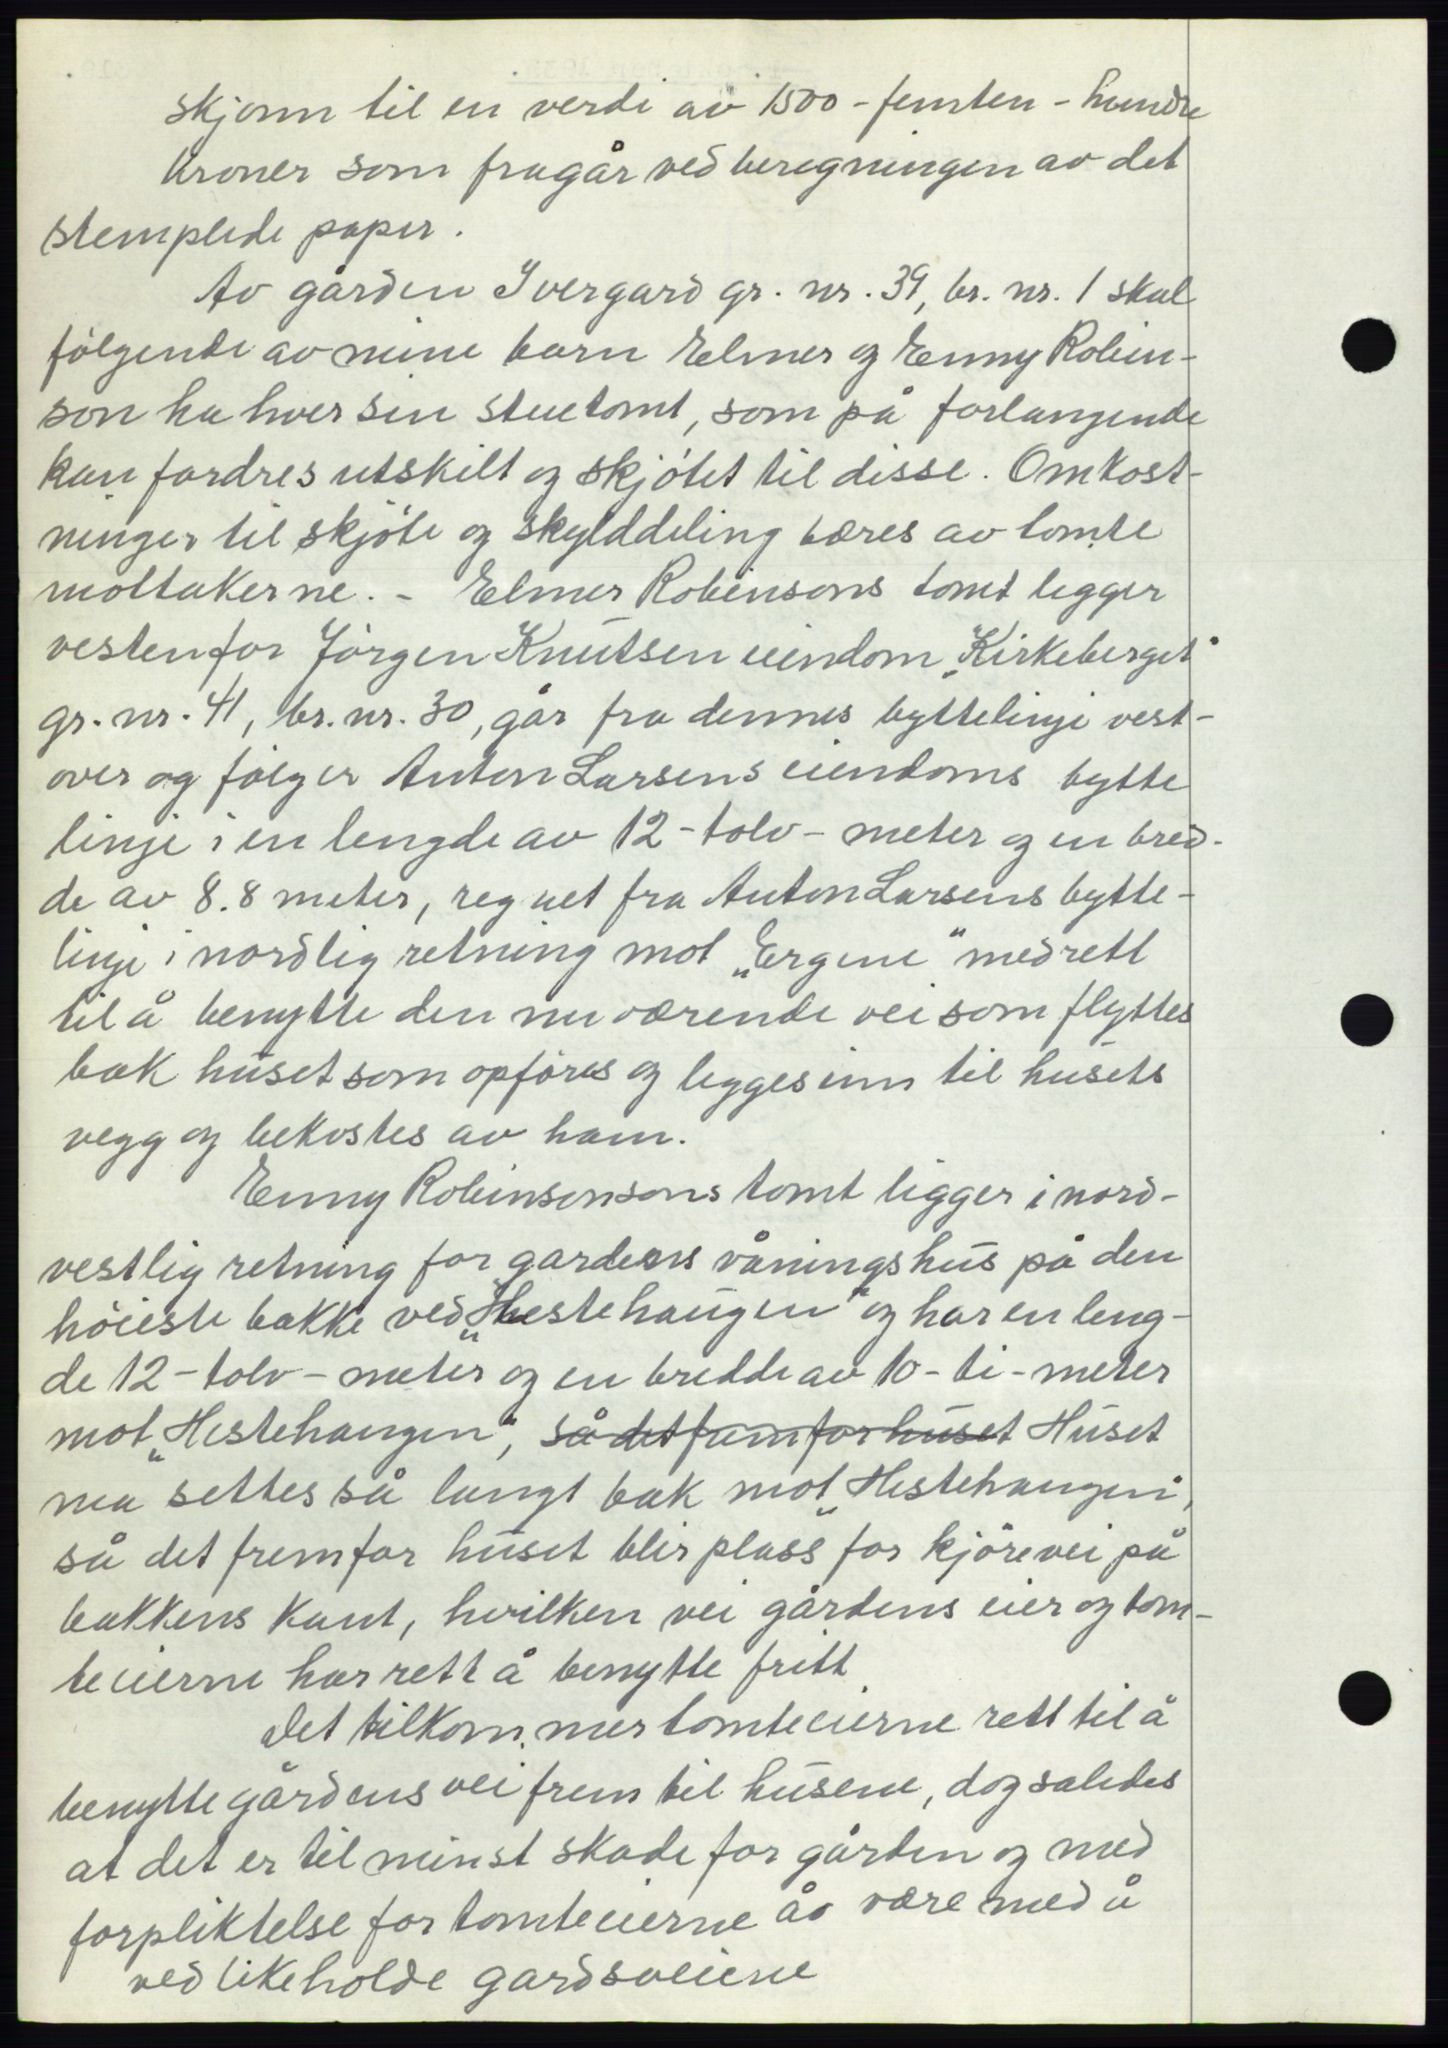 skjønn til en verdi av 1500 - femten - hundre
kroner som fragår ved beregningen av det
stemplede papir.
Av gården Ivergard gr. nr. 39, br. nr. 1 skal
følgende av mine barn Elmer og Enny Robin-
son ha hver sin stuetomt, som på forlangende
kan fordres utskilt og skjøtet til disse. Omkost-
ninger til skjøte og skylddeling bæres av tomte
mottakerne. - Elmer Robinsons tomt ligger
vestenfor Jørgen Knutsen eiendom „Kirkeberget"
gr. nr. 41, br. nr. 30, går fra dennes byttelinje vest-
over og følger Anton Larsens eiendoms bytte
linje i en lengde av 12 - tolv - meter og en bred-
de av 8.8 meter, regnet fra Anton Larsens bytte-
linje i nordlig retning mot „Ergene" med rett
til å benytte den nuværende vei som flyttes
bak huset som opføres og legges inn til husets
vegg og bekostes av ham.
Enny Robinsonsons tomt ligger i nord-
vestlig retning for gardens våningshus på den
høieste bakke ved „Hestehaugen" og har en leng-
de 12 - tolv - meter og en bredde av 10 - ti - meter
mot „Hestehaugen", så det fremfor huset Huset
ma settes så langt bak mot „Hestehaugen",
så det fremfor huset blir plass for kjørevei på
bakkens kant, hvilken vei gårdens eier og tom-
teeierne har rett å benytte fritt
Det tilkommer tomteeierne rett til å
benytte gårdens vei frem til husene, dog saledes
at det er til minst skade for gården og med
forpliktelse for tomteeierne åv være med å
vedlikeholde gardsveiene